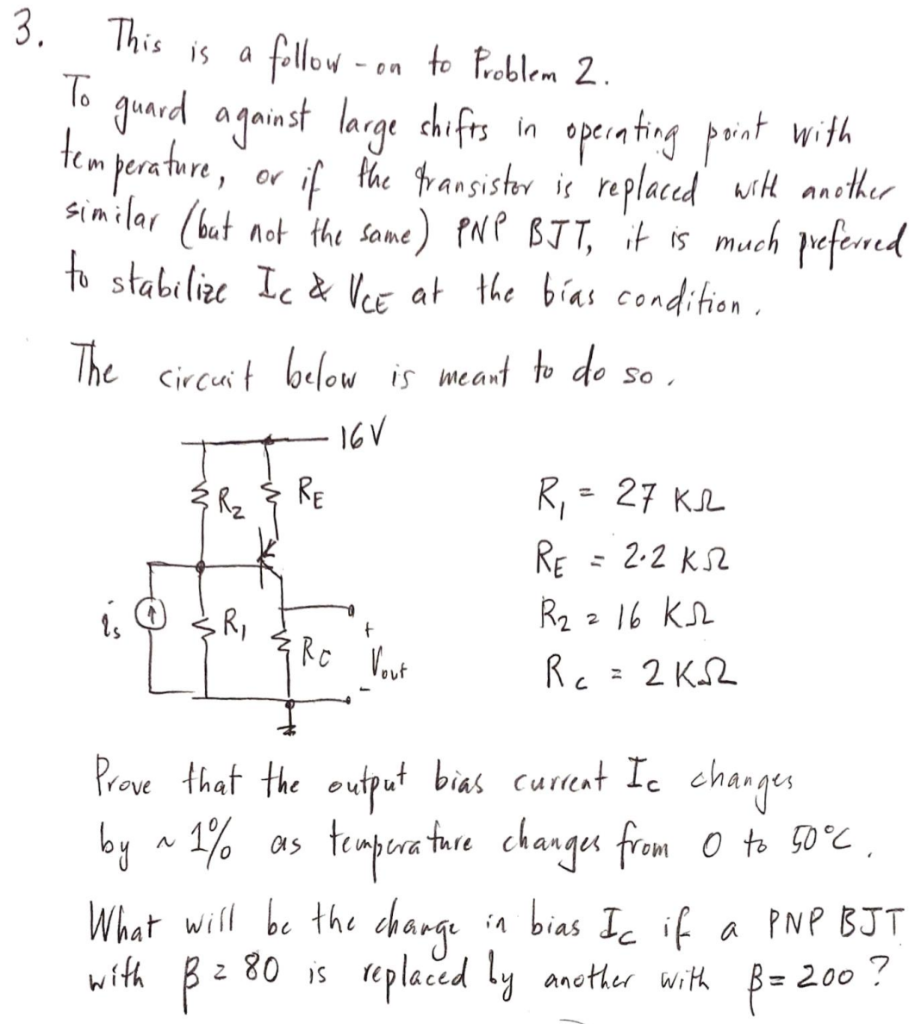 3. This is a follow-on to Problem 2.
To guard against large shifts in operating point with
temperature, or if the transistor is replaced with another
similar (but not the same) PNP BJT, it is much preferred
to stabilize Ic & VCE at the bias condition.
The circuit below is meant to do so.
16V
R2 RE
is R1 Rc + Vout -
R1 = 27 KΩ
RE = 2.2 KΩ
R2 = 16 KΩ
Rc = 2 KΩ
Prove that the output bias current Ic changes
by ~ 1% as temperature changes from 0 to 50°C.
What will be the change in bias Ic if a PNP BJT
with β = 80 is replaced by another with β = 200?